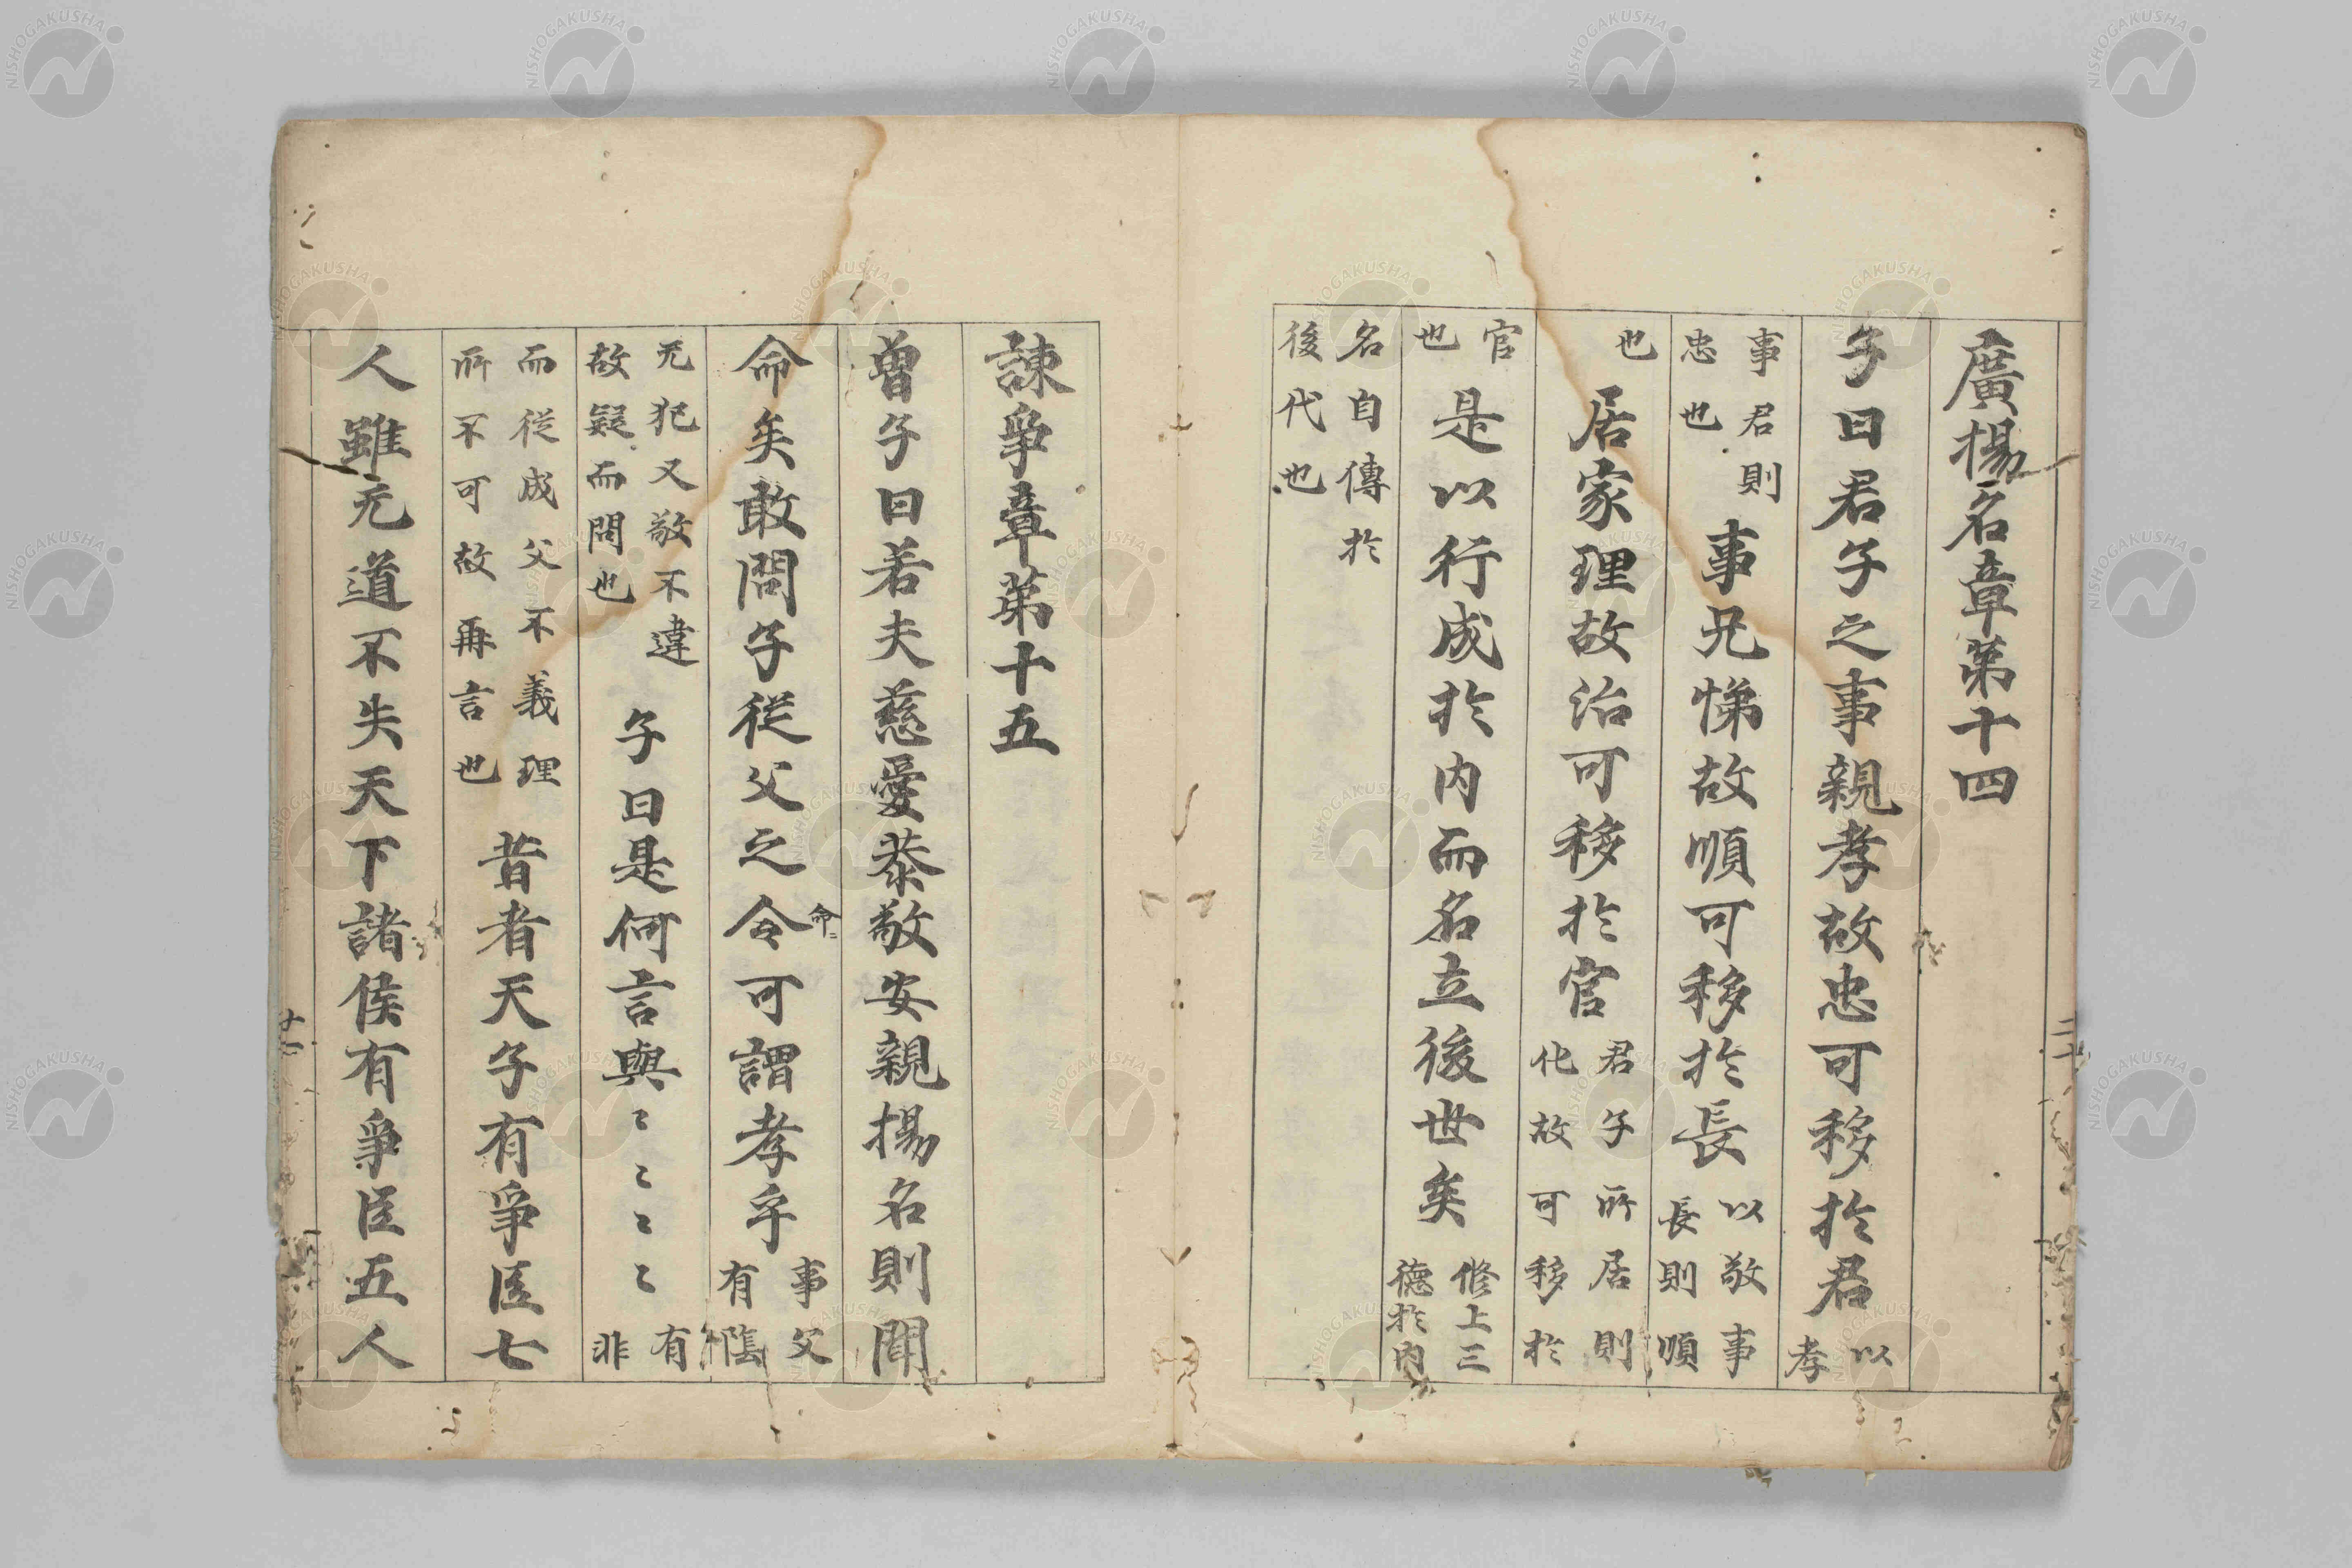 廣揚名章第十四
子曰君子之事親孝故忠可移於君 以孝
事君則忠也 事兄悌故順可移於長 以敬事長則順
也 居家理故治可移於官 君子所居則化故可移於
官也 是以行成於内而名立後世矣 修上三德於内
名自傳於後代也
諌爭章第十五
曽子曰若夫慈愛恭敬安親揚名則聞
命矣敢問子従父之令命可謂孝乎 事父有隠
无犯又敬不違故疑而問也 子曰是何言與〻〻〻〻 有非
而従成父不義理所不可故再言也 昔者天子有爭臣七
人雖无道不失天下諸侯有爭臣五人
NISHOGAKUSHA